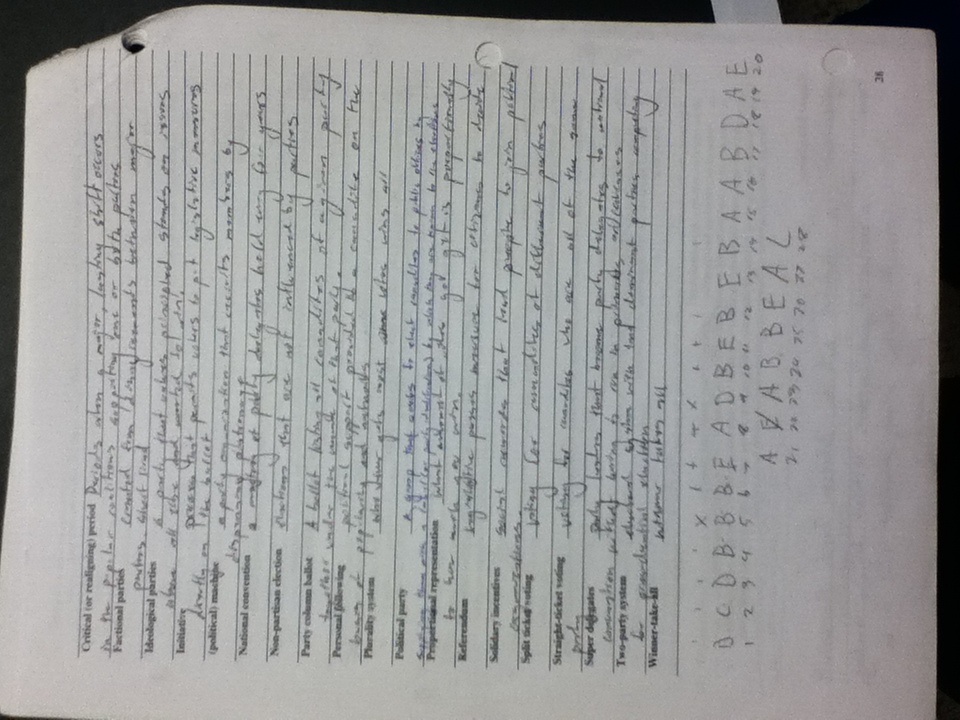 Critical (or realigning) period Periods when a major, lasting shift occurs
in the popular coalitions supporting one or both parties
Factional parties created from disagreements between major
parties. short lived
Ideological parties A party that values principled stands on issues
above all else and
Initiative process that permits voters to put legislative measures
directly on the ballot
(political) machine a party organization that recruits members by
dispensing patronage
National convention a meeting of party delegates held every four years
Non-partisan election elections that are not influenced by parties
Party column ballot A ballot listing all canadites of a given party
together under the name of that party.
Personal following political support provided to a canadite on the
basis of popularity and networks
Plurality system who ever gets most votes wins all
Political party A group that seeks to elect canadites to public offices by
supplying them with a label (or party identification) by which they are known to the electorate
Proportional representation what amount of you get is proportionally
to how much you win.
Referendum legislative passes measure for citizens to decide
Solidary incentives social rewards that lead people to join political
organizations.
Split ticket voting voting for canadites of different parties
Straight-ticket voting voting for canadites who are all of the same
party
Super delegates party leaders that become party delegates to national
convention without having to run in primaries or caucuses
Two-party system electoral system with two dominant parties competing
for presidential election
Winner-take-all winner takes all
D C D B B B E A D B E B E B A A B D A E
1 2 3 4 5 6 7 8 9 10 11 12 13 14 15 16 17 18 19 20
A E A B B E A C
21 22 23 24 25 26 27 28
28